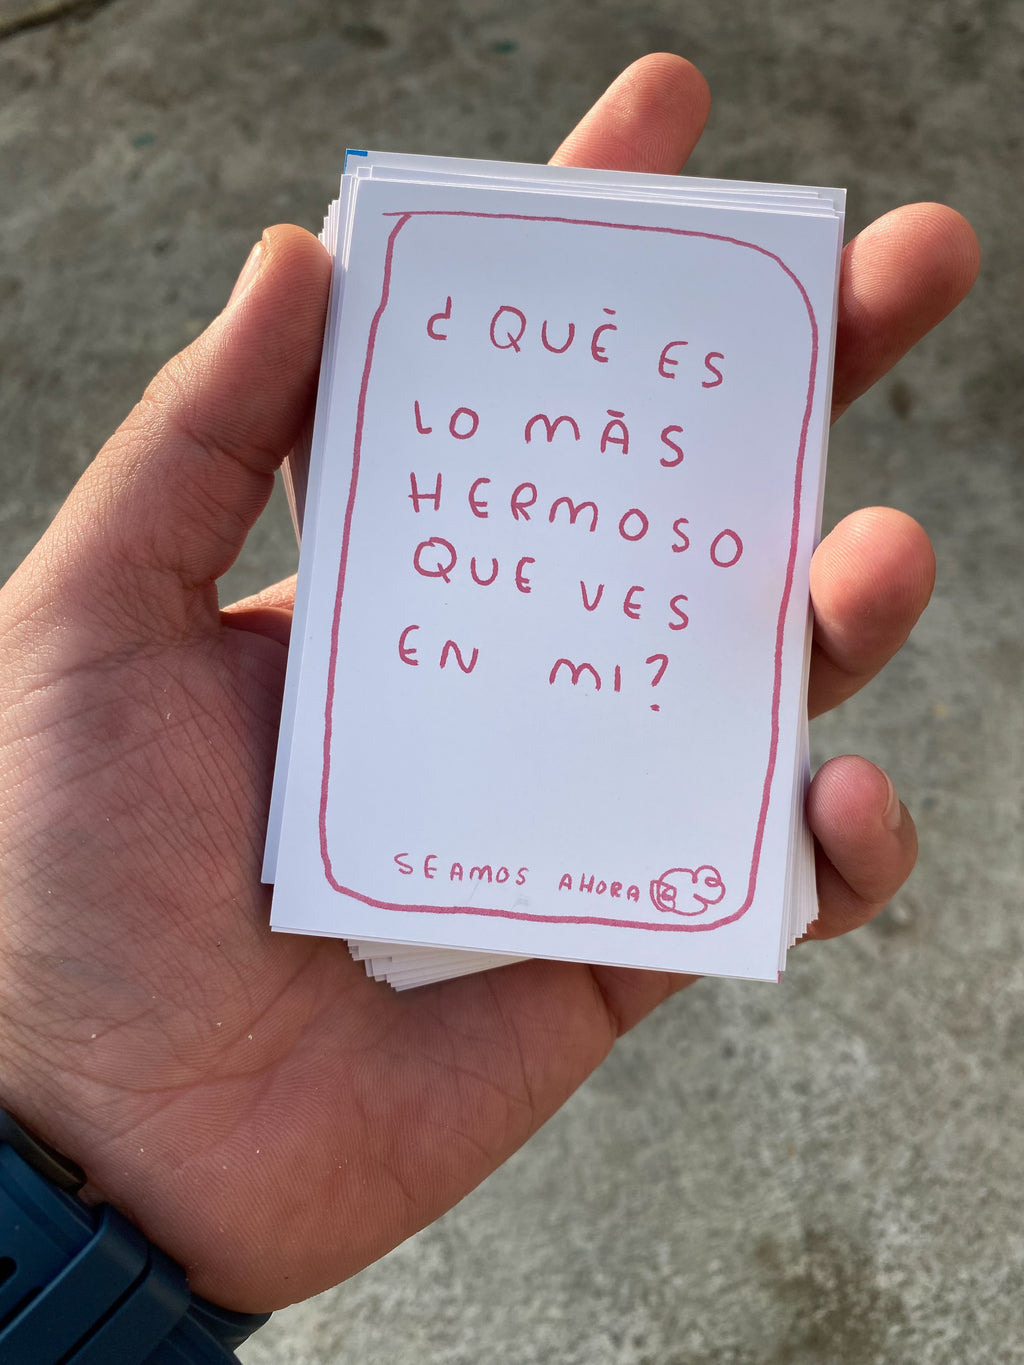 ¿QUÉ ES
LO MÁS
HERMOSO
QUE VES
EN MI?
SEAMOS AHORA